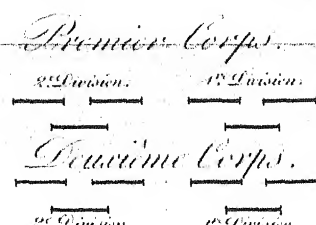 Premier Corps.
2e. Division. 1re. Division.
Deuxième Corps.
2e. Division 1re. Division